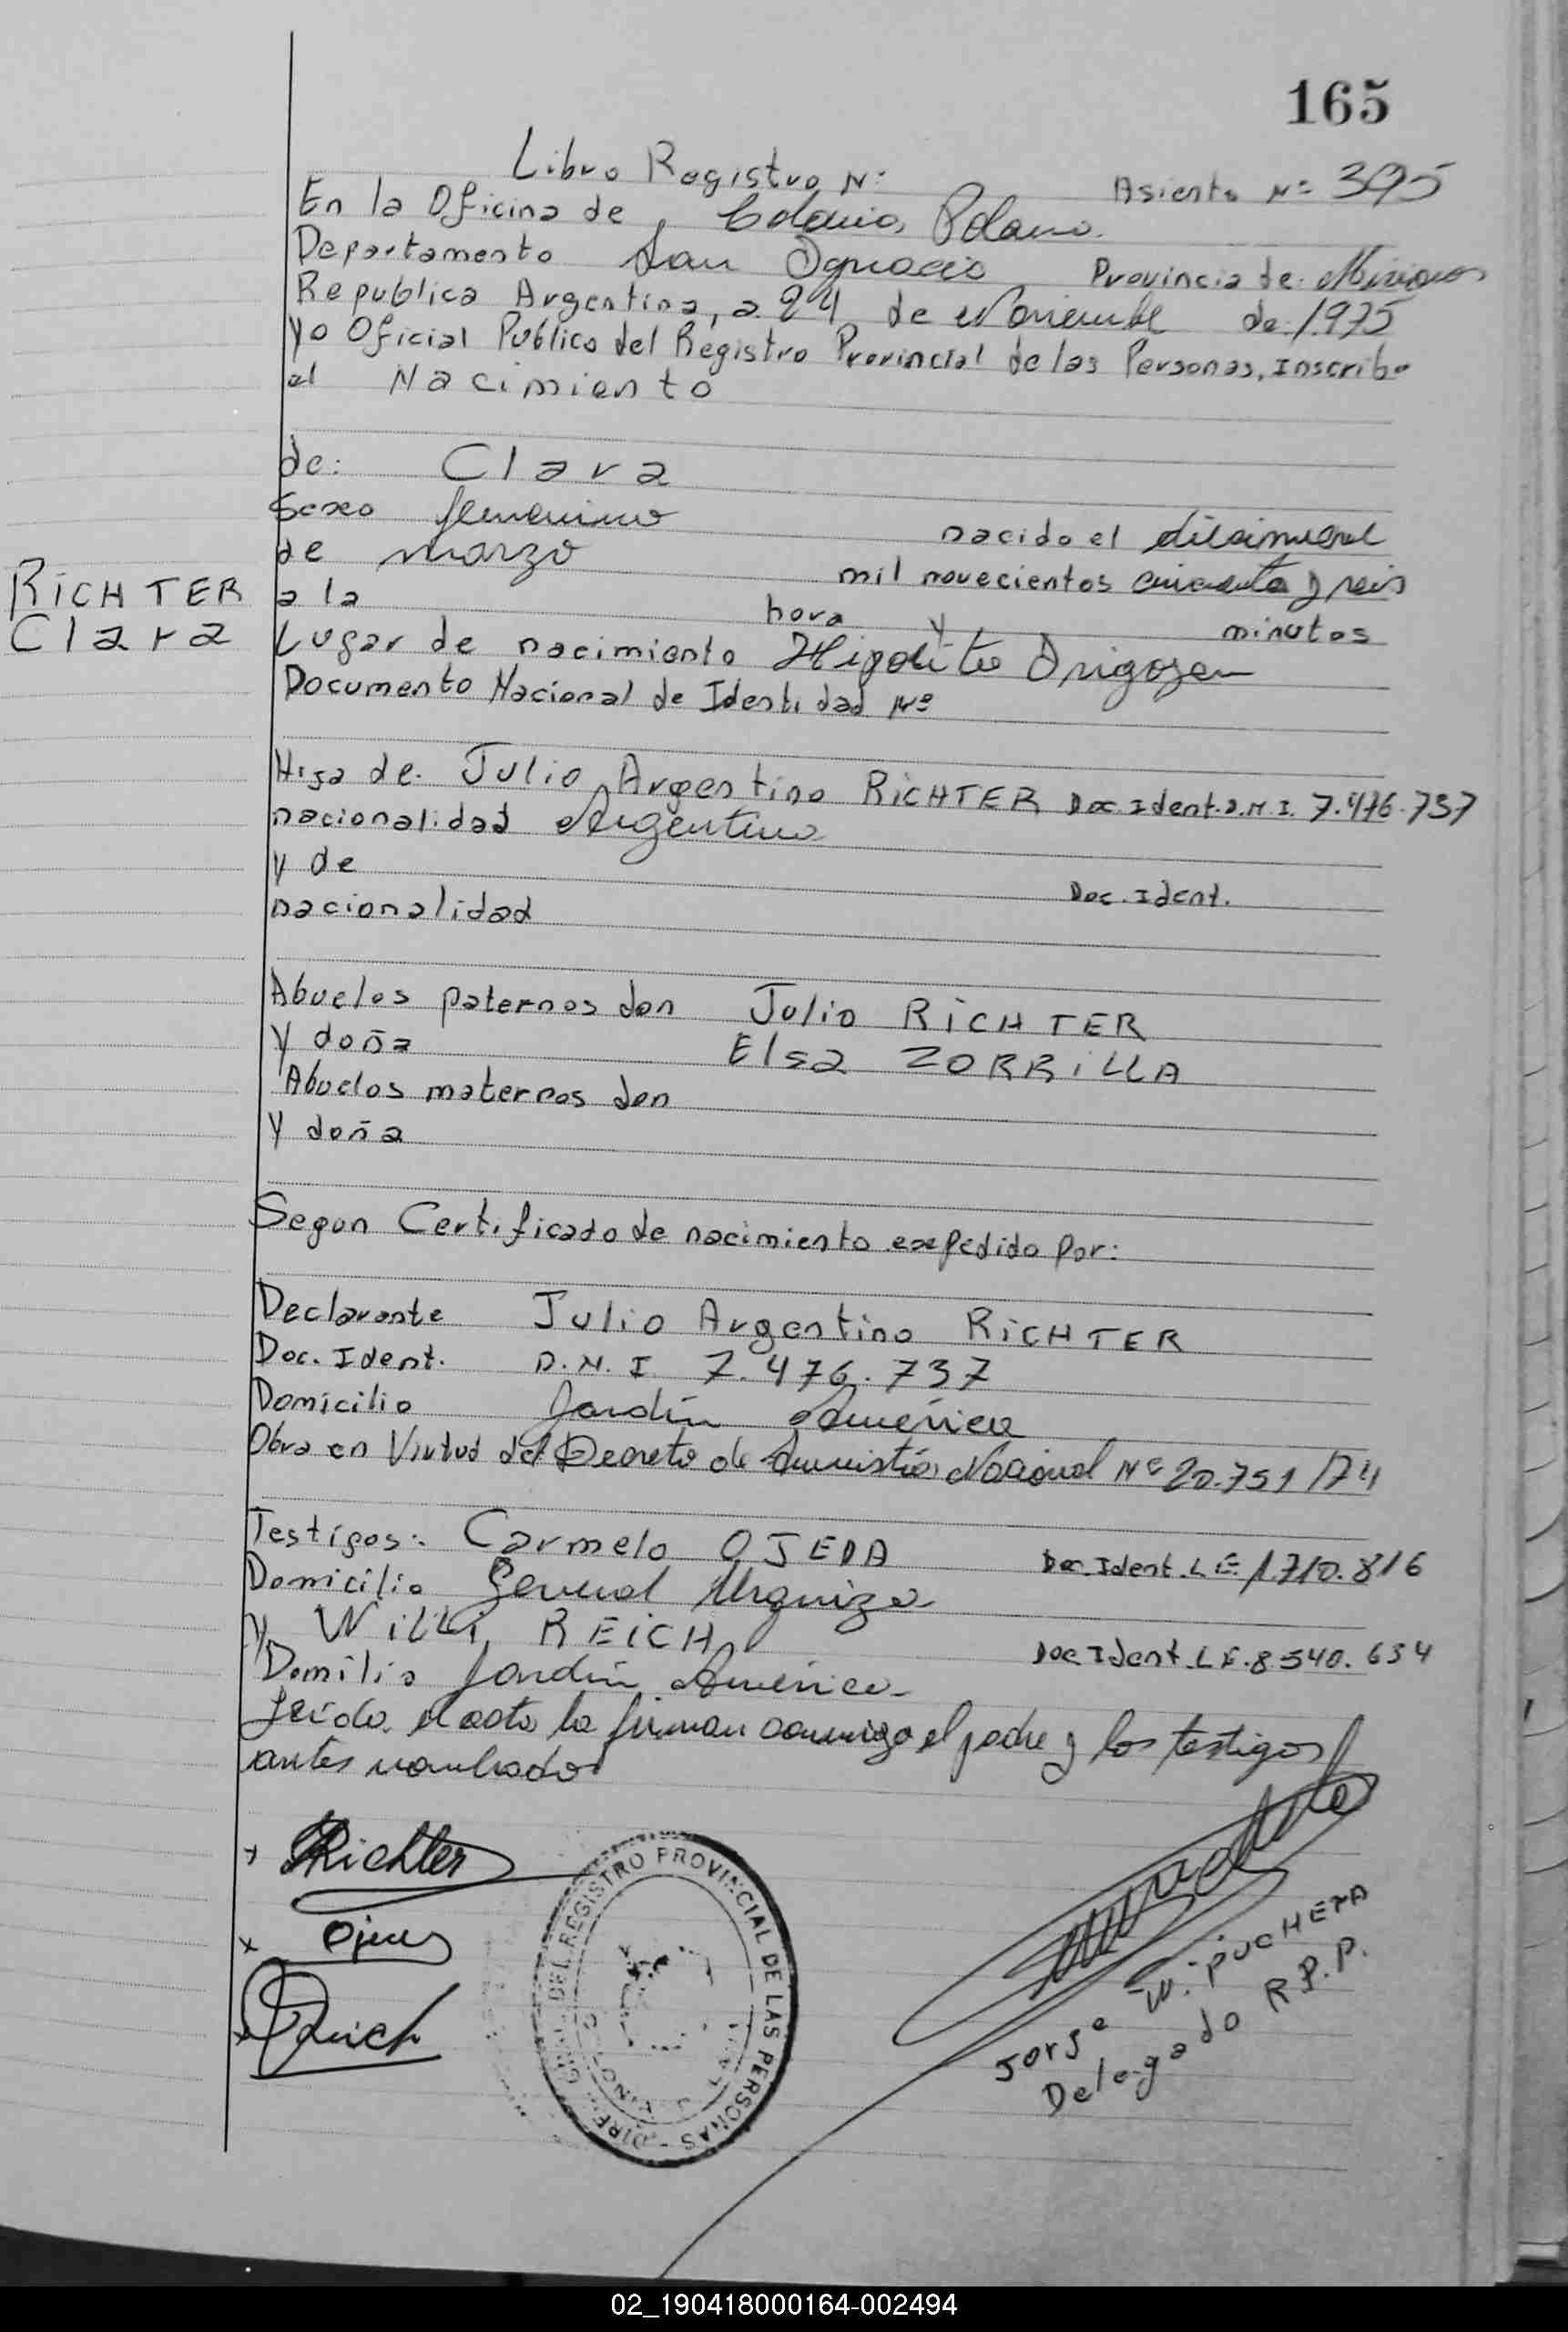 165
Libro Registro Nº
Asiento Nº 395
En la Oficina de Colonia Polana
Departamento San Ignacio Provincia de: Misiones
Republica Argentina, a 24 de Noviembre de: 1975
Yo Oficial Publico del Registro Provincial de las Personas, Inscribo
el Nacimiento
de: Clara
Sexo femenino nacido el diecinueve
de marzo mil novecientos cincuenta y seis
RiCHTER
Clara
a la hora y minutos
Lugar de nacimiento Hipolito Irigoyen
Documento Nacional de Identidad Nº
Hija de. Julio Argentino RiCHTER Doc. Ident. D.N.I. 7.476.737
nacionalidad Argentino
y de Doc. Ident.
nacionalidad
Abuelos paternos don Julio RiCHTER
Y doña Elsa ZORRiLLA
Abuelos maternos don
Y doña
Segun Certificado de nacimiento expedido por:
Declarante Julio Argentino RiCHTER
Doc. Ident. D.N.I. 7.476.737
Domicilio Jardín América
Obra en Virtud del Decreto de Amnistía Nacional Nº 20.751/74
Testigos: Carmelo OJEDA Doc. Ident. L.E. 1.710.816
Domicilio General Urquiza
y WiLLi REiCH Doc Ident. L.E. 8.540.634
Domilio Jardín América
Leída el acta la firman conmigo el padre y los testigos
antes nombrados
x Richter
x Ojeda
x Reich
DIREC. GRAL. DEL REGISTRO PROVINCIAL DE LAS PERSONAS
COLONIA POLANA
Jorge W. PUCHETA
Delegado R.P.P.
02_190418000164-002494